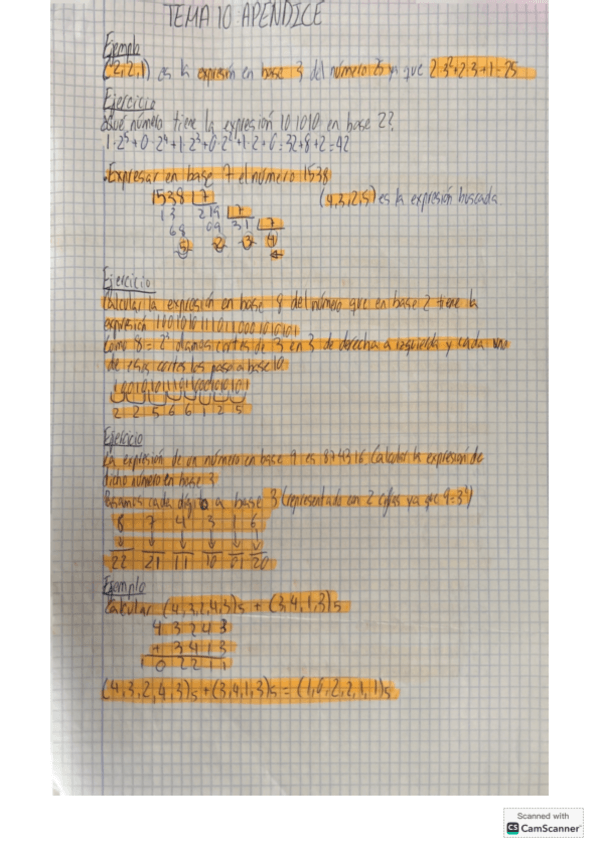 TEMA 10 APENDICE
Ejemplo
(2,2,1) es la expresión en base 3 del número 25 ya que 2·3²+2·3+1=25
Ejercicio
¿Qué número tiene la expresión 101010 en base 2?
1·2⁵+0·2⁴+1·2³+0·2²+1·2+0=32+8+2=42
Expresar en base 7 el número 1538
1538 7 (4,3,2,5) es la expresión buscada
13 219 7
68 09 31 7
5 2 3 4
Ejercicio
Calcular la expresión en base 8 del número que en base 2 tiene la
expresión
Como 8=2³ damos cortes de 3 en 3 de derecha a izquierda y cada uno
de esos cortes los paso a base 10
2 2 5 6 6 1 2 5
Ejercicio
La expresión de un número en base 9 es 874316 Calcular la expresión de
dicho número en base 3
Pasamos cada dígito a base 3 (representado con 2 cifras ya que 9=3²)
8 7 4 3 1 6
22 21 11 10 01 20
Ejemplo
Calcular (4,3,2,4,3)₅ + (3,4,1,3)₅
4 3 2 4 3
+ 3 4 1 3
1 0 2 2 1 1
(4,3,2,4,3)₅+(3,4,1,3)₅=(1,0,2,2,1,1)₅
Scanned with
CS CamScanner